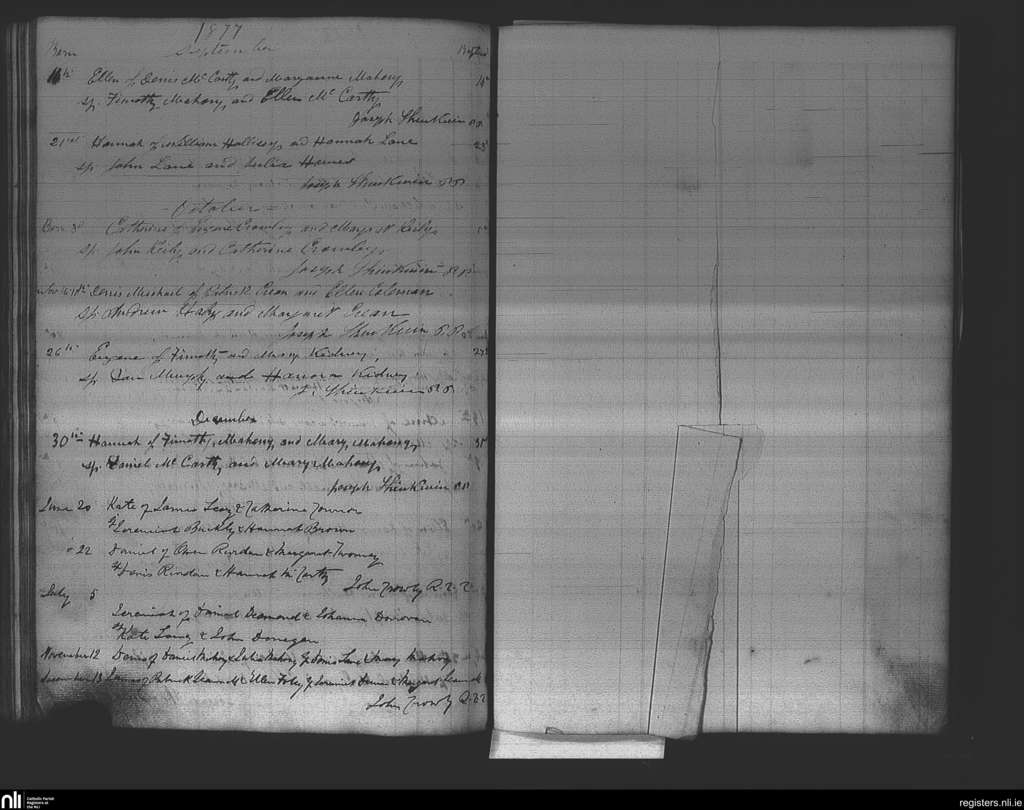 1877
Born September Baptised
Ellen of Denis McCarthy and Maryanne Mahony
Sp. Timothy Mahony and Ellen McCarthy
Joseph Shinkwin P.P.
21st Hannah of William and Hannah Lane
Sp. John Lane and Julia
Joseph Shinkwin P.P.
October
Born 3d Catherine of Eugene Crowley and Margaret Keily
Sp. John Keily and Catherine Crowley
Joseph Shinkwin P.P.
Denis Michael of Patrick and Ellen Coleman
Sp. Andrew and Margaret
Joseph Shinkwin P.P.
26th Eugene of Timothy and Mary Kidney,
Sp. Dan Murphy and Hanora Kidney
J. Shinkwin P.P.
December
30th Hannah of Timothy Mahony and Mary Mahony,
Sp. Daniel McCarthy and Mary Mahony
Joseph Shinkwin P.P.
June 20 Kate of James & Catherine Connor
Sp Jeremiah Buckley & Hannah Brown
" 22 Daniel of Owen Riordan & Margaret Twomey
Sp Denis Riordan & Hannah McCarthy
John Crowly R.C.C.
July 5
Jeremiah of Daniel Desmond & Johanna Donovan
Sp Kate & John Donegan
November 12 Denis of Daniel Mahony & Julia Mahony Sp Denis Lane & Mary Mahony
December 13 James of Patrick & Ellen Foley Sp Jeremiah & Margaret
John Crowly R.C.C
nli
Catholic Parish
Registers at
the NLI
registers.nli.ie